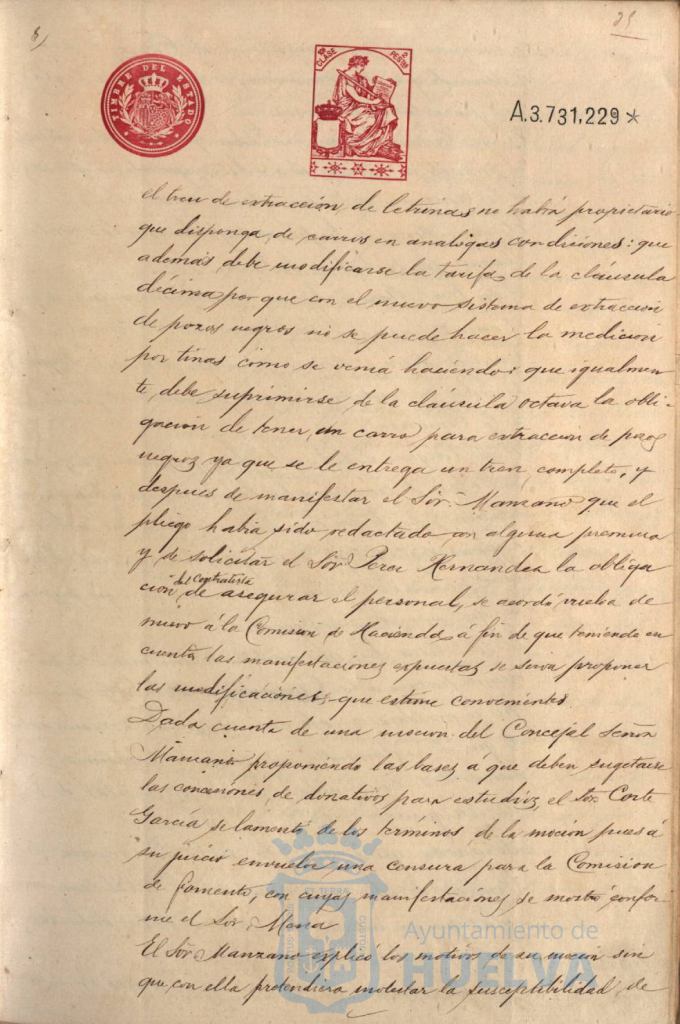 25
TIMBRE DEL ESTADO
10ª CLASE 2 PESTAS
A.3.731,229*
el tren de extracción de letrinas no habrá propietario
que disponga de carros en analogas condiciones: que
además debe modificarse la tarifa de la cláusula
décima por que con el nuevo sistema de extraccion
de pozos negros no se puede hacer la medicion
por tinas como se venía haciendo: que igualmen
te debe suprimirse de la cláusula octava la obli-
gacion de tener un carro para extraccion de pozos
negros ya que se le entrega un tren completo, y
despues de manifestar el Sór. Manzano que el
pliego había sido redactado con alguna premura
y de solicitar el Sór Perez Hernandez la obliga
cion del Contratista de asegurar el personal, se acordó vuelva de
nuevo á la Comisión de Hacienda á fin de que teniendo en
cuenta las manifestaciones expuestas se sirva proponer
las modificaciones que estime convenientes.
Dada cuenta de una mocion del Concejal Señor
Manzano proponiendo las bases á que deben sugetarse
las concesiones de donativos para estudios, el Sór. Corte
Garcia se lamentó de los términos de la mocion pues á
su juicio envuelve una censura para la Comision
de Fomento, con cuyas manifestaciones se mostró confor
me el Sór. Mora
El Sór Manzano explicó los motivos de su mocion sin
que con ella pretendiera molestar la susceptibilidad de
Ayuntamiento de
HUELVA